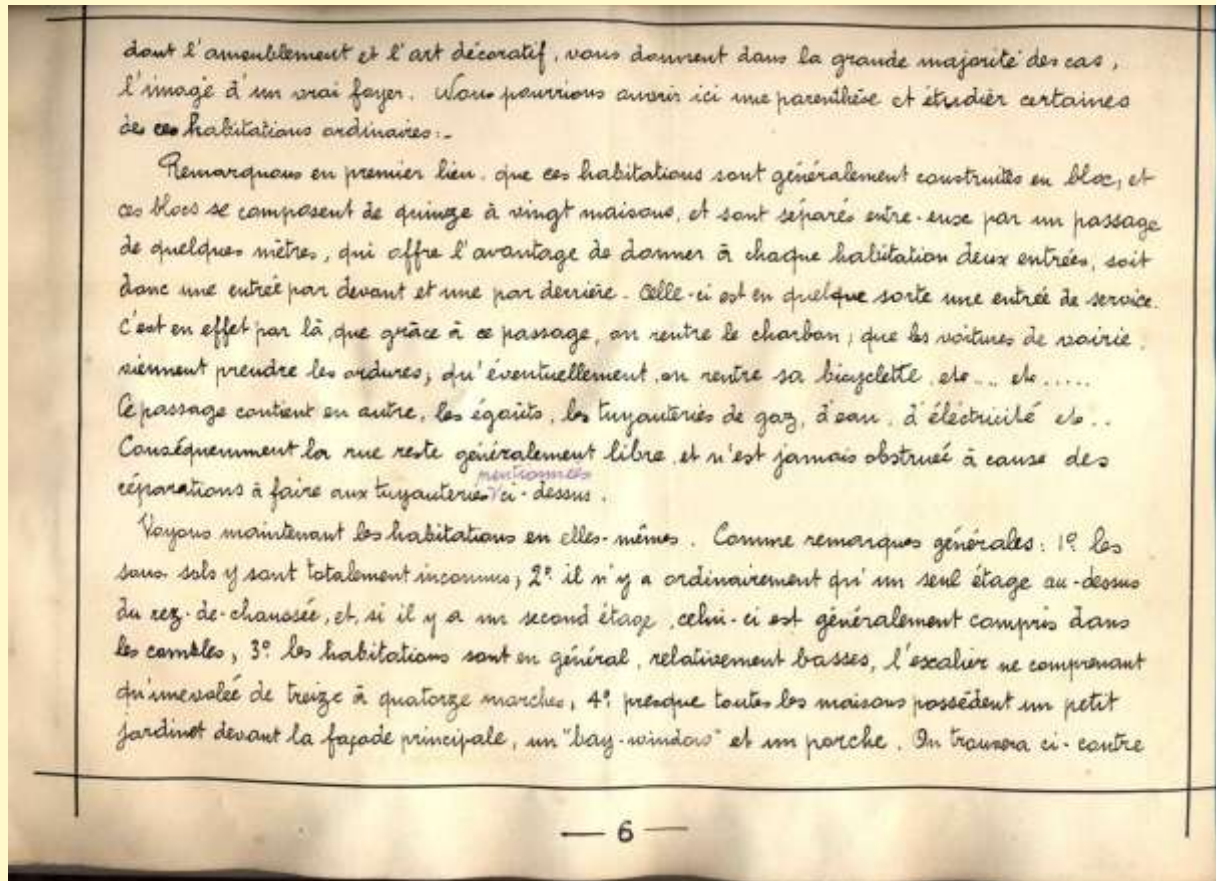 dont l'ameublement et l'art décoratif, vous donnent dans la grande majorité des cas,
l'image d'un vrai foyer. Nous pourrions ouvrir ici une parenthèse et étudier certaines
de ces habitations ordinaires :-
Remarquons en premier lieu, que ces habitations sont généralement construites en bloc, et
ces blocs se composent de quinze à vingt maisons, et sont séparés entre-eux par un passage
de quelques mètres, qui offre l'avantage de donner à chaque habitation deux entrées, soit
donc une entrée par devant et une par derrière. Celle-ci est en quelque sorte une entrée de service.
C'est en effet par là, que grâce à ce passage, on rentre le charbon ; que les voitures de voirie,
viennent prendre les ordures, qu'éventuellement, on rentre sa bicyclette, etc... etc.....
Ce passage contient en outre, les égoûts, les tuyauteries de gaz, d'eau, d'éléctricité etc..
Conséquemment la rue reste généralement libre, et n'est jamais obstruée à cause des
mentionnées
réparations à faire aux tuyauteries ci-dessus.
Voyons maintenant les habitations en elles-mêmes. Comme remarques générales : 1º les
sous-sols y sont totalement inconnus, 2º il n'y a ordinairement qu'un seul étage au-dessus
du rez-de-chaussée, et, si il y a un second étage, celui-ci est généralement compris dans
les combles, 3º les habitations sont en général, relativement basses, l'escalier ne comprenant
qu'une volée de treize à quatorze marches, 4º presque toutes les maisons possèdent un petit
jardinet devant la façade principale, un "bay-window" et un porche. On trouvera ci-contre
— 6 —